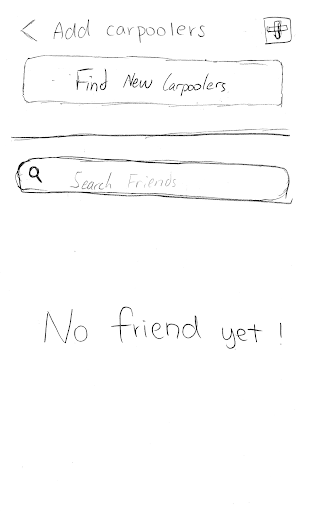 Add carpoolers
Find New Carpoolers
Search Friends
No friend yet!